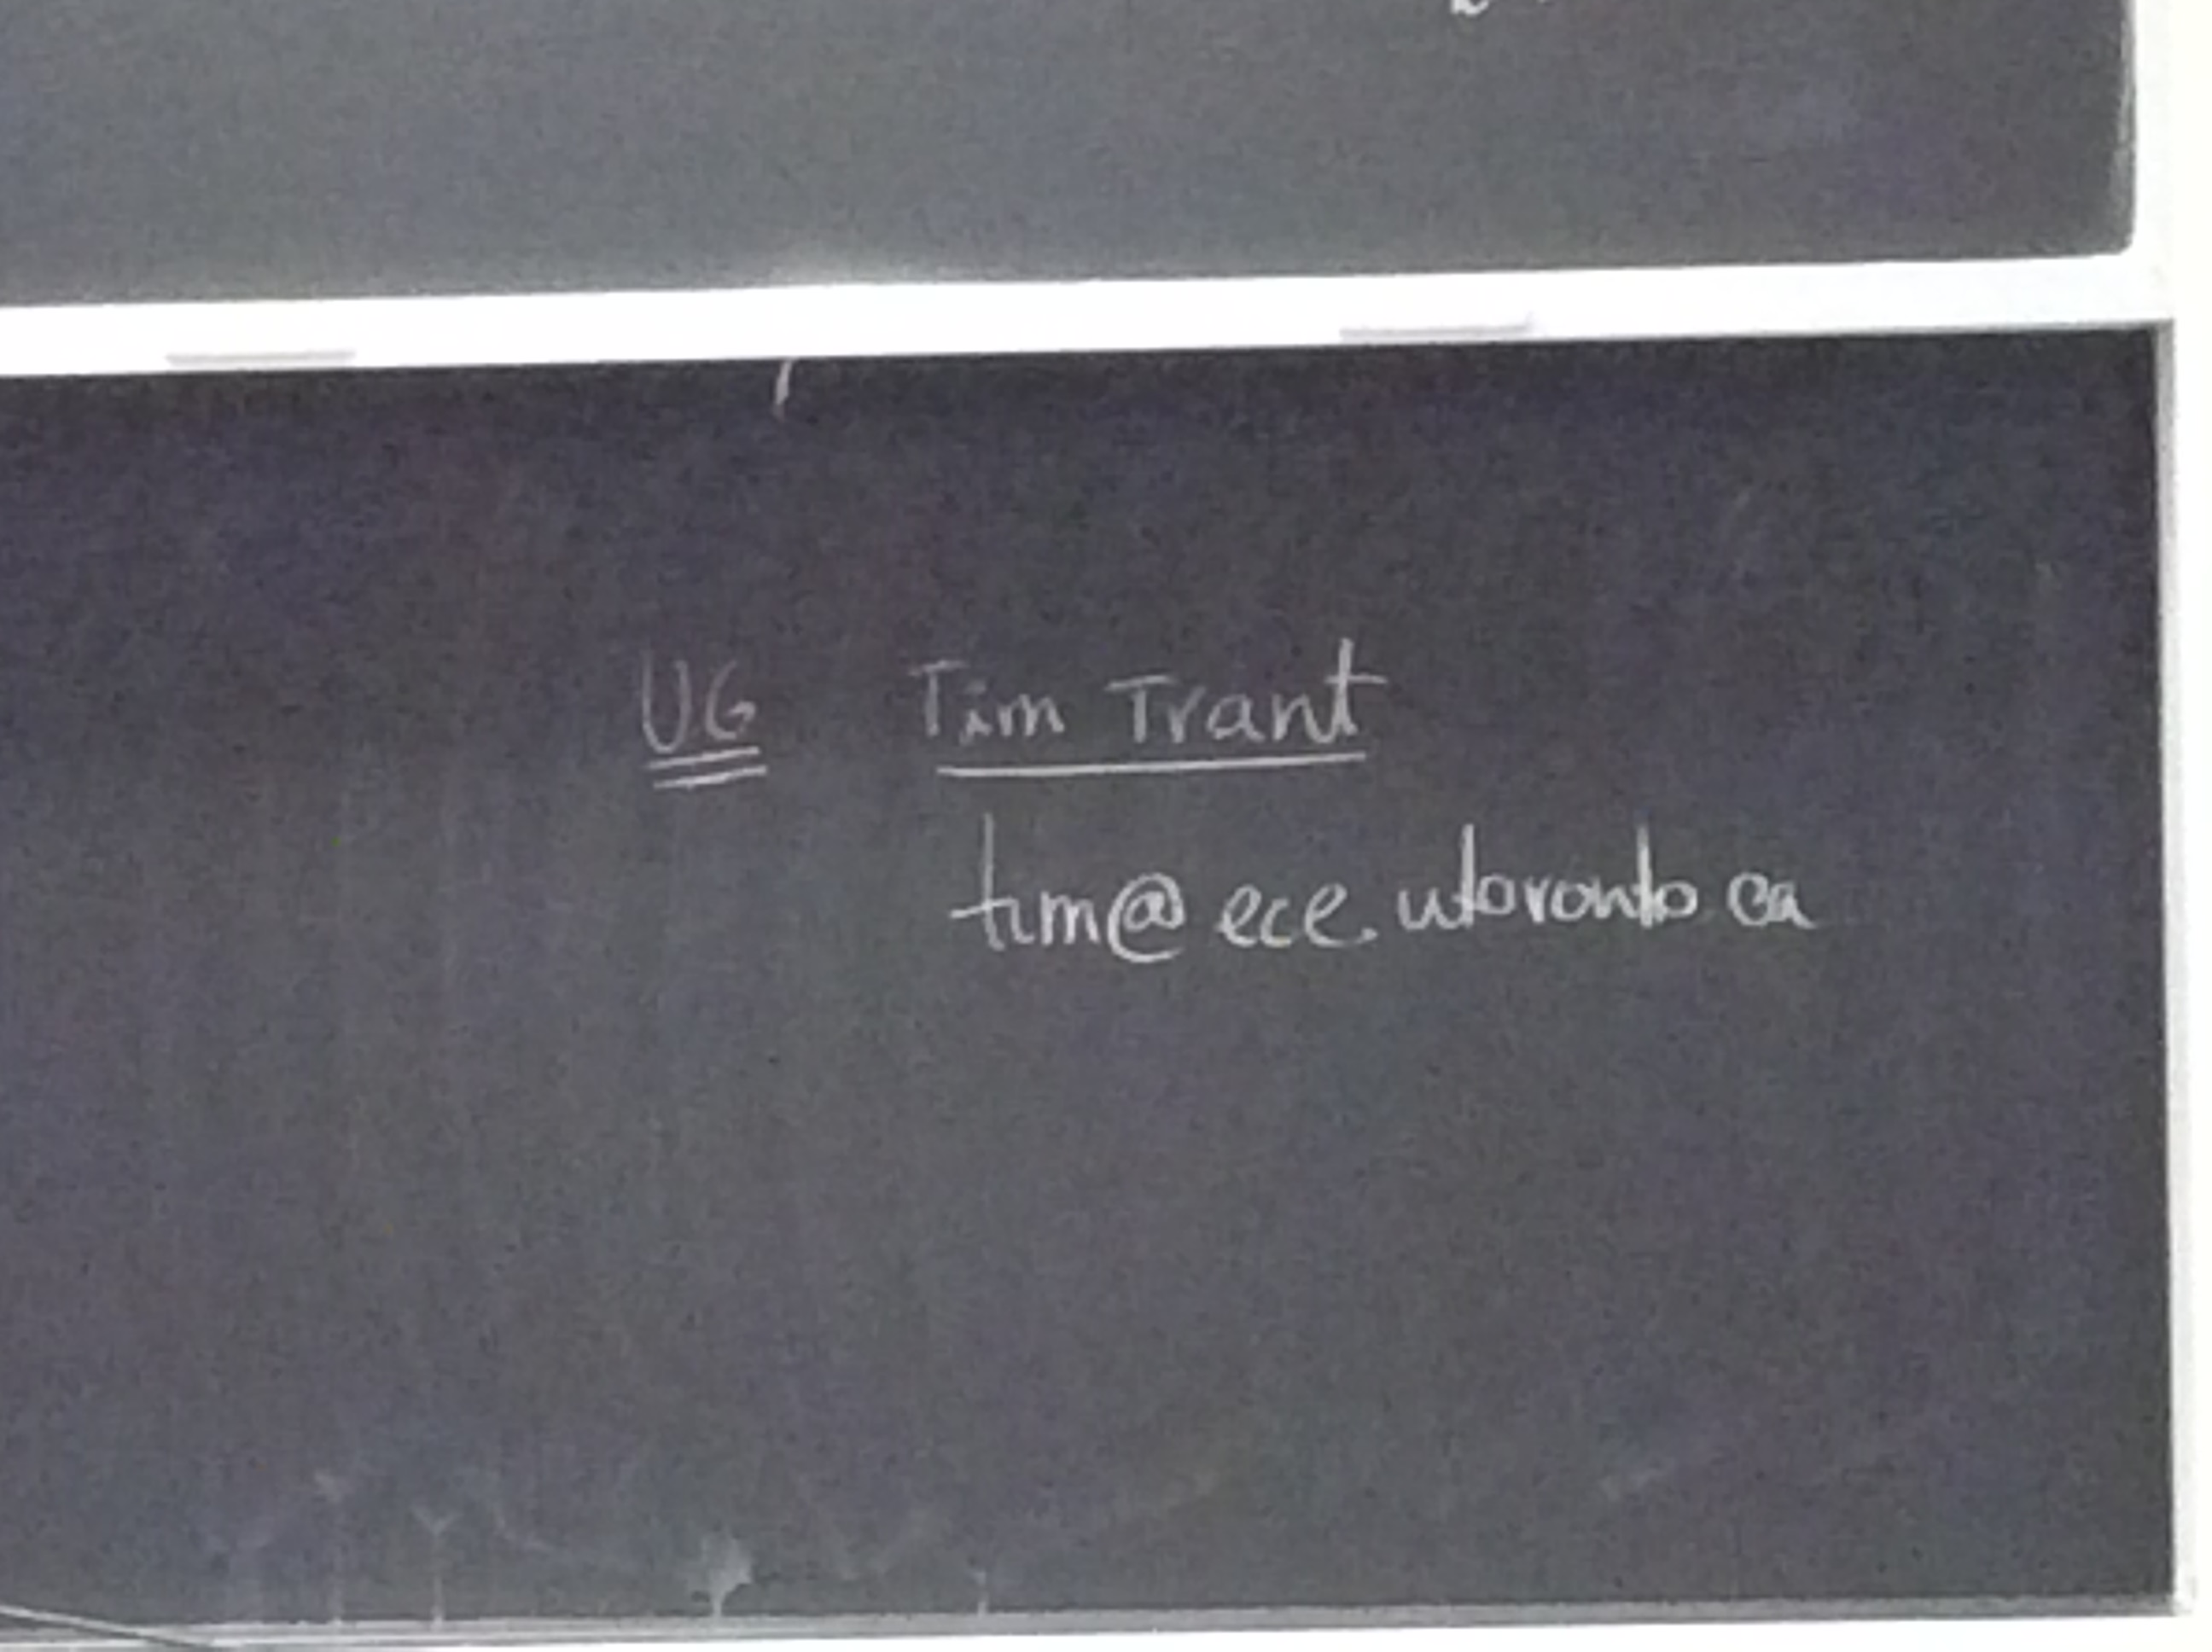 UG Tim Trant
tim@ece.utoronto.ca